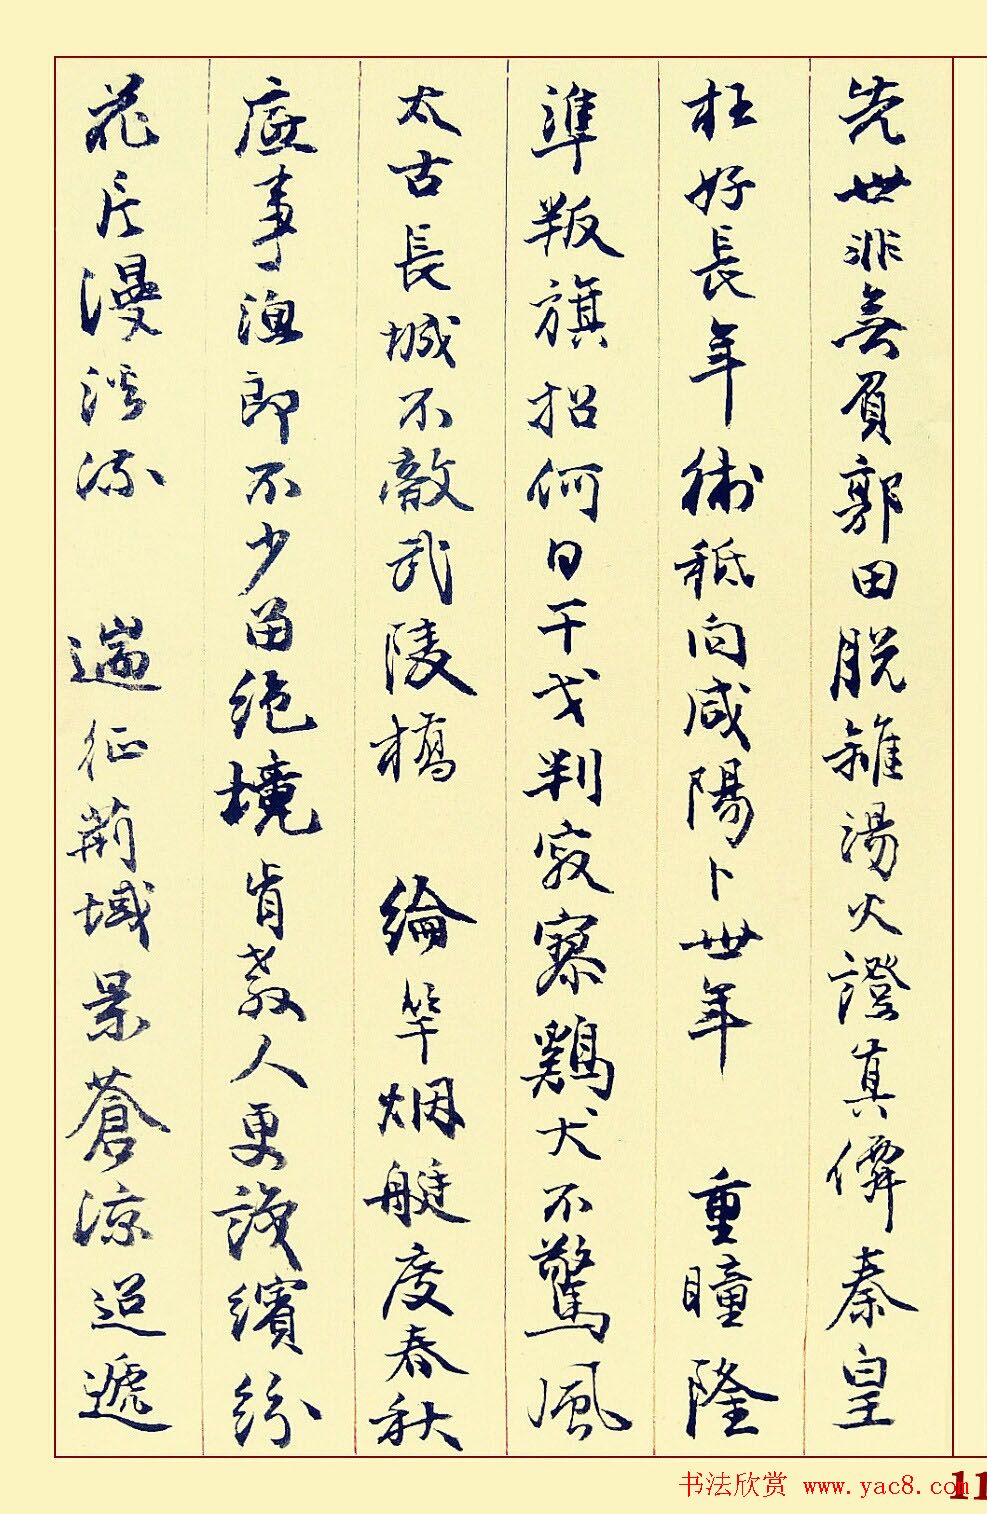 先世非無負郭田脱離湯火證真僊秦皇
枉好長年術秖向咸陽卜世年 重瞳隆
準叛旗招何日干戈判寂寥鷄犬不驚風
太古長城不敵武陵橋 綸竿烟艇度春秋
底事漁郎不少留絶境肯教人更識繽紛
花片漫淡流 遄征荊域景蒼涼迢遞
书法欣赏 www.yac8.com
11